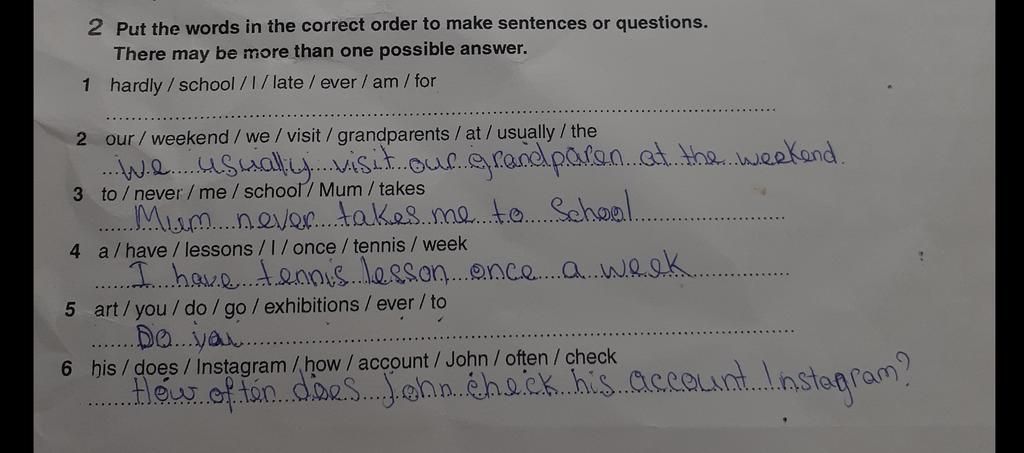 2 Put the words in the correct order to make sentences or questions.
There may be more than one possible answer.
1 hardly / school / I / late / ever / am / for
2 our / weekend / we / visit / grandparents / at / usually / the
We usually visit our grandparen at the weekend.
3 to / never / me / school / Mum / takes
Mum never takes me to School
4 a / have / lessons / I / once / tennis / week
I have tennis lesson once a week
5 art / you / do / go / exhibitions / ever / to
Do you
6 his / does / Instagram / how / account / John / often / check
How often does John check his account Instagram?